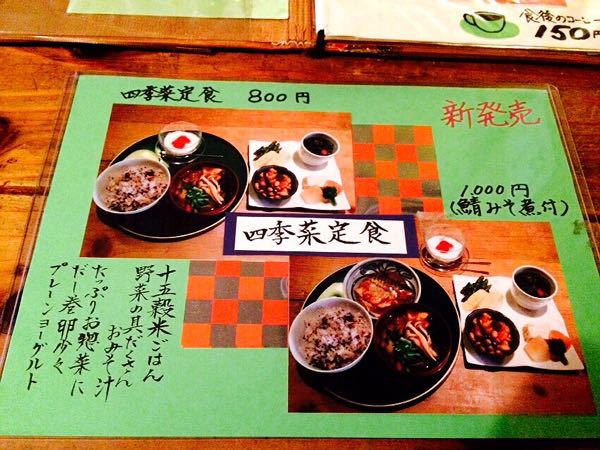 食後のコーヒー
150円
四季菜定食 800円
新発売
1,000円
(鯖みそ煮付)
四季菜定食
十五穀米ごはん
野菜の具だくさん
おみそ汁
たっぷりお惣菜に
だし巻卵
プレーンヨーグルト